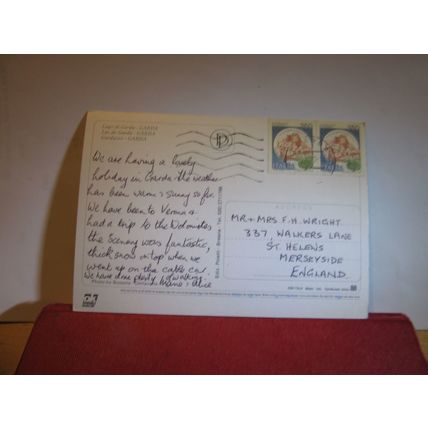 Lago di Garda - GARDA
Lac de Garda - GARDA
Gardasee - GARDA
We are having a lovely
holiday in Garda the weather
has been warm & sunny so far.
We have been to Verona &
had a trip to the Dolomites
the scenery was fantastic,
thick snow on top when we
went up on the cable car.
We have done plenty of walking.
MR + MRS F.H. WRIGHT.
337 WALKERS LANE
ST. HELENS
MERSEYSIDE
ENGLAND.